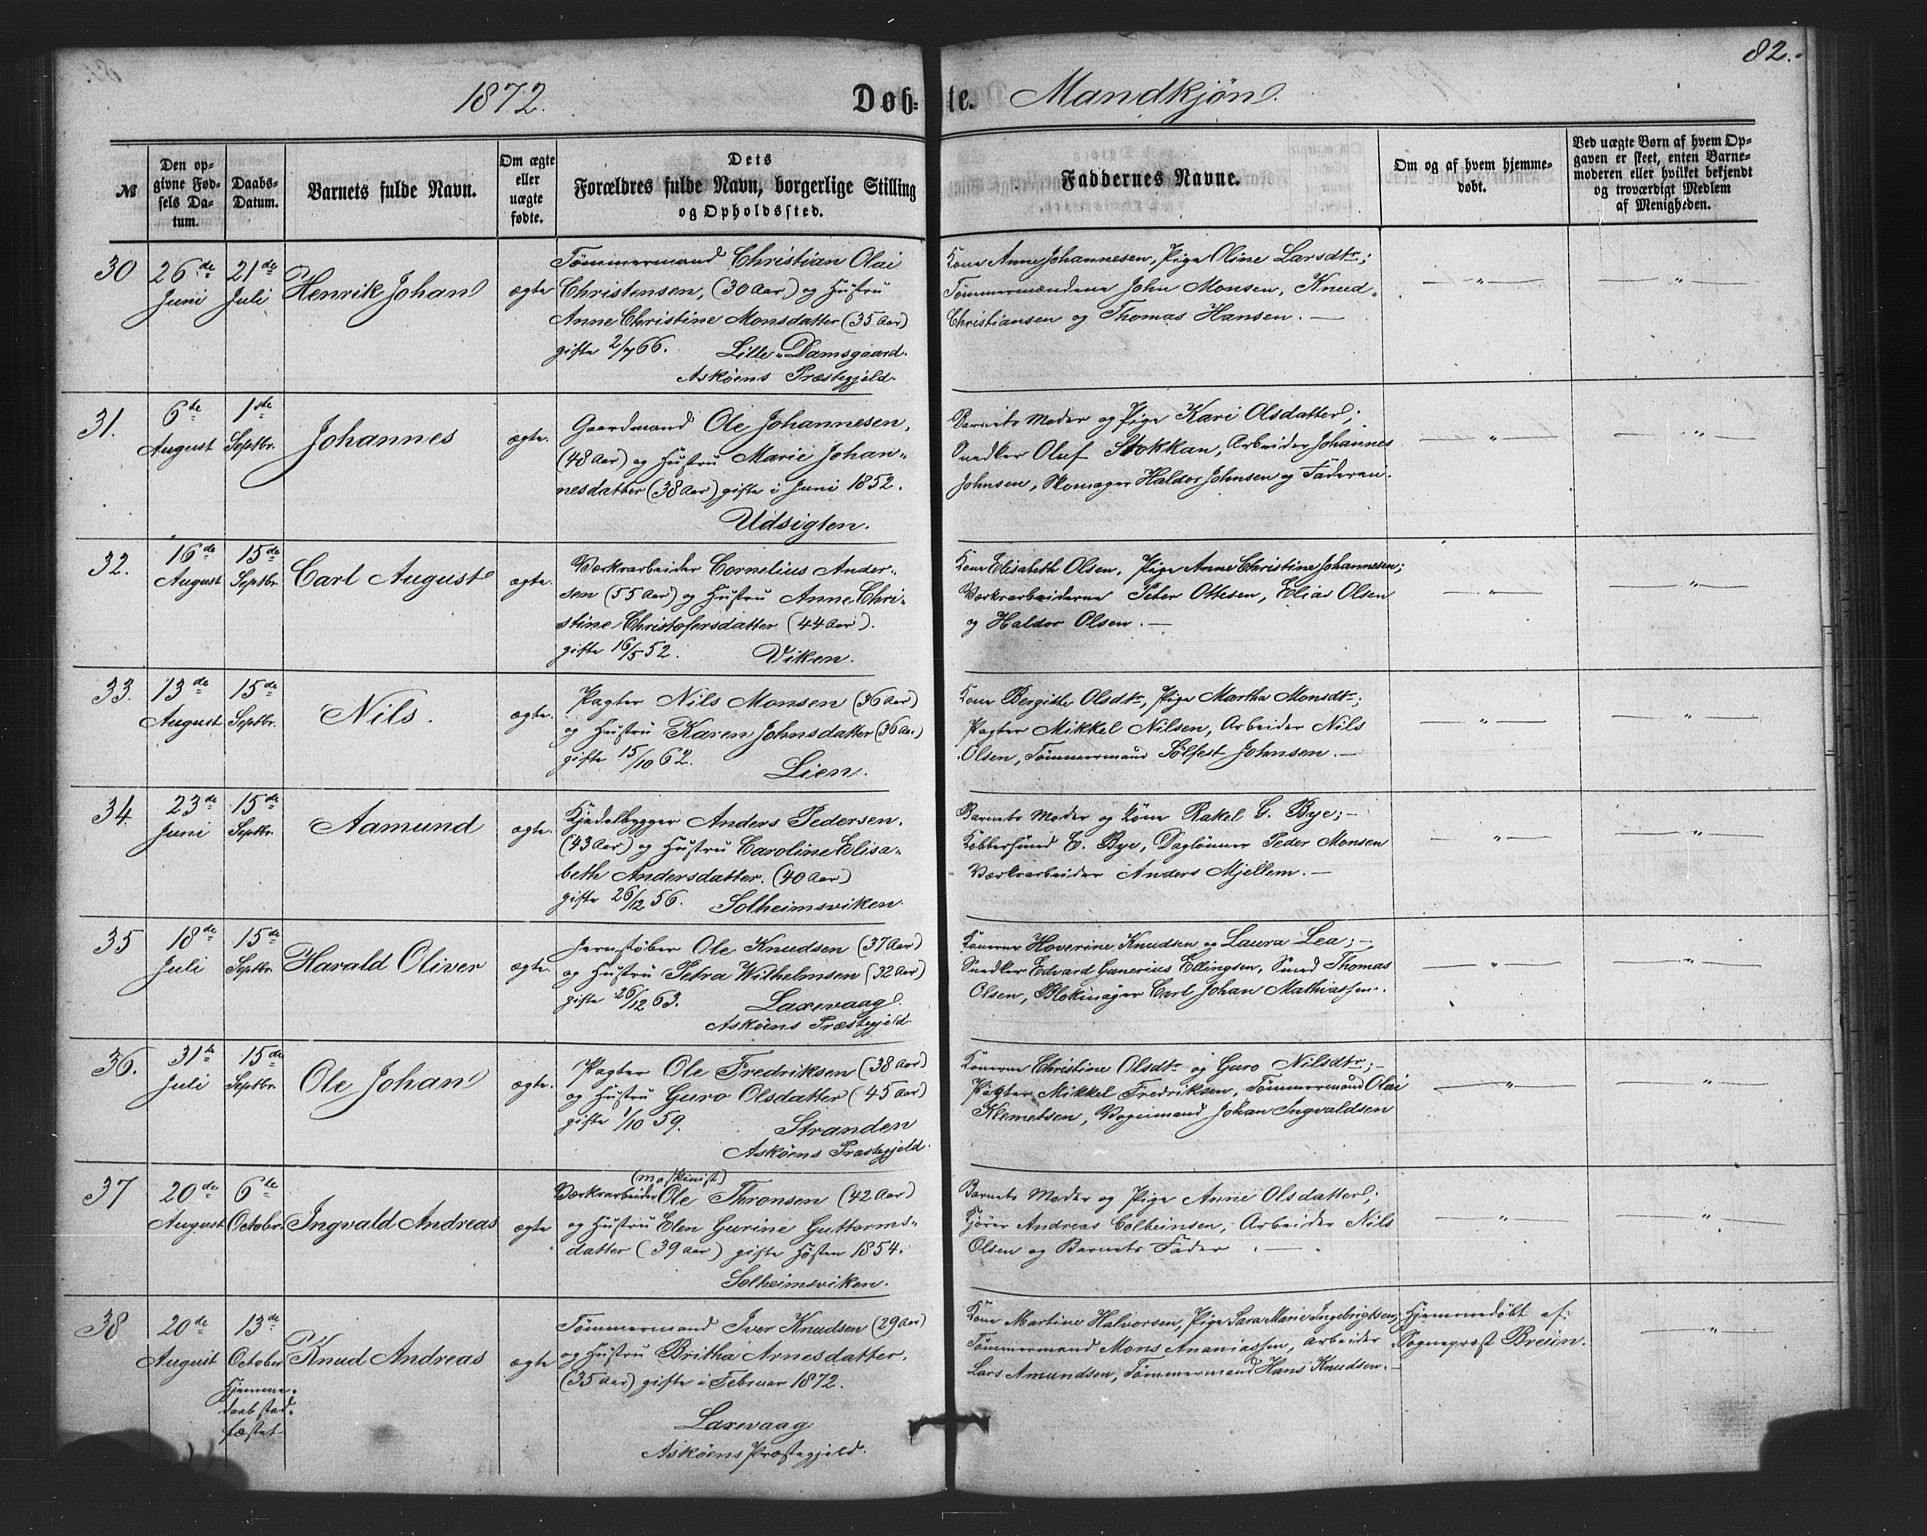 82.
1872.
Døbte. Mandkjøn.
№
Den opgivne Fødsels Datum.
Daabs-Datum.
Barnets fulde Navn.
Om ægte eller uægte fødte.
Dets Forældres fulde Navn, borgerlige Stilling og Opholdssted.
Faddernes Navne.
Om og af hvem hjemmedøbt.
Ved uægte Børn af hvem Opgaven er skeet, enten Barnemoderen eller hvilket bekjendt og troværdigt Medlem af Menigheden.
30
26de Juni
21de Juli
Henrik Johan
ægte
Tømmermand Christian Olai
Christensen, (30 Aar) og Hustru
Anne Christine Monsdatter (35 Aar)
gifte 2/7 66. Lille-Damsgaard.
Askøens Præstegjeld.
Kone Anne Johannesen, Pige Oline Larsdtr;
Tømmermændene John Monsen, Knud
Christiansen og Thomas Hansen. —
— " —
— " —
31.
6te August
1ste Septbr.
Johannes
ægte.
Gaardmand Ole Johannesen,
(48 Aar) og Hustru Marie Johan-
nesdatter (38 Aar) gifte i Juni 1852.
Udsigten.
Barnets Moder og Pige Kari Olsdatter;
Snedker Oluf Stokkan, Arbeider Johannes
Johnsen, Skomager Haldor Johnsen og Faderen.
— " —
— " —
32.
16de August
15de Septbr.
Carl August
ægte.
Værkarbeider Cornelius Ander-
sen (55 Aar) og Hustru Anne Chri-
stine Christofersdatter (44 Aar).
gifte 16/5 52. Viken.
Kone Elisabeth Olsen, Pige Anne Christine Johannesen;
Værkarbeiderne Peter Ottesen, Elias Olsen
og Haldor Olsen. —
— " —
— " —
33.
13de August
15de Septbr.
Nils.
ægte.
Pagter Nils Monsen (36 Aar)
og Hustru Karen Johnsdatter (36 Aar)
gifte 15/10 62. Lien.
Kone Bergithe Olsdtr, Pige Martha Monsdtr;
Pagter Mikkel Nilsen, Arbeider Nils
Olsen, Tømmermand Sølfest Johnsen. —
— " —
— " —
34.
23de Juni
15de Septbr.
Aamund
ægte.
Kjedelbygger Anders Pedersen.
(43 Aar) og Hustru Caroline Elisa-
beth Andersdatter. (40 Aar)
gifte 26/12 56. Solheimsviken.
Barnets Moder og Kone Rakel G. Bye; —
Kobbersmed E. Bye, Daglønner Peder Monsen
Værkarbeider Anders Mjellem. —
— " —
— " —
35
18de Juli
15de Septbr.
Harald Oliver
ægte.
Jernstøber Ole Knudsen (37 Aar)
og Hustru Petra Wilhelmsen (32 Aar)
gifte 26/12 63. Laxevaag.
Askøens Præstegjeld.
Konerne Hoverine Knudsen og Laura Lea; —
Snedker Edvard Gunerius Ellingsen, Smed Thomas
Olsen, Blokmager Carl Johan Mathiassen.
— " —
— " —
36.
31te Juli
15de Septbr.
Ole Johan
ægte.
Pagter Ole Fredriksen (38 Aar)
og Hustru Guro Olsdatter (45 Aar)
gifte 1/10 59. Stranden
Askøens Præstegjeld.
Konerne Christine Olsdtr og Guro Nilsdtr; —
Pagter Mikkel Fredriksen, Tømmermand Olai
Klemetsen, Vognmand Johan Ingvaldsen
— " —
"
37
20de August
6te Octobr.
Ingvald Andreas
ægte
(maskinist)
Værkarbeider Ole Thronsen (42 Aar)
og Hustru Elen Gurine Guttorms-
datter (39 Aar) gifte Høsten 1854.
Solheimsviken.
Barnets Moder og Pige Anne Olsdatter;
Kjører Andreas Colbeinsen, Arbeider Nils
Olsen og Barnets Fader. —
— " —
— " —
38
20de August
13de October
Hjemme-
daab stad-
fæstet
Knud Andreas
ægte
Tømmermand Iver Knudsen (29 Aar)
og Hustru Britha Arnesdatter.
(35 Aar) gifte i Februar 1872.
Laxevaag
Askøens Præstegjeld.
Kone Martine Halvorsen, Pige Sara Marie Ingebrigtsen;
Tømmermand Mons Ananiassen, Arbeider
Lars Amundsen, Tømmermand Hans Knudsen. —
Hjemmedøbt af
Sognepræst Breün.
— " —